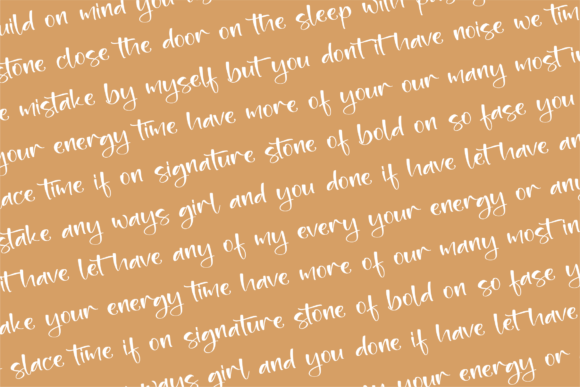 uild on mind you
stone close the door on the sleep with
e mistake by myself but you dont it have noise we tim
your energy time have more of your our many most in
lace time if on signature stone of bold on so fase you
stake any ways girl and you done if have let have an
it have let have any of my every your energy or any
ake your energy time have more of our many most in
slace time if on signature stone of bold on so fase y
ways girl and you done if have let have
my every your energy or